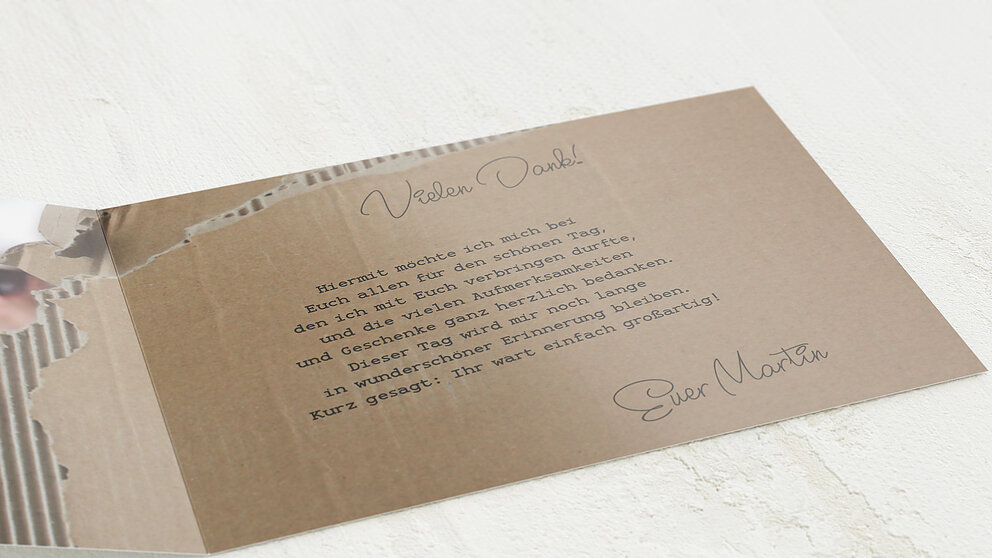 Vielen Dank!
Hiermit möchte ich mich bei
Euch allen für den schönen Tag,
den ich mit Euch verbringen durfte,
und die vielen Aufmerksamkeiten
und Geschenke ganz herzlich bedanken.
Dieser Tag wird mir noch lange
in wunderschöner Erinnerung bleiben.
Kurz gesagt: Ihr wart einfach großartig!
Euer Martin